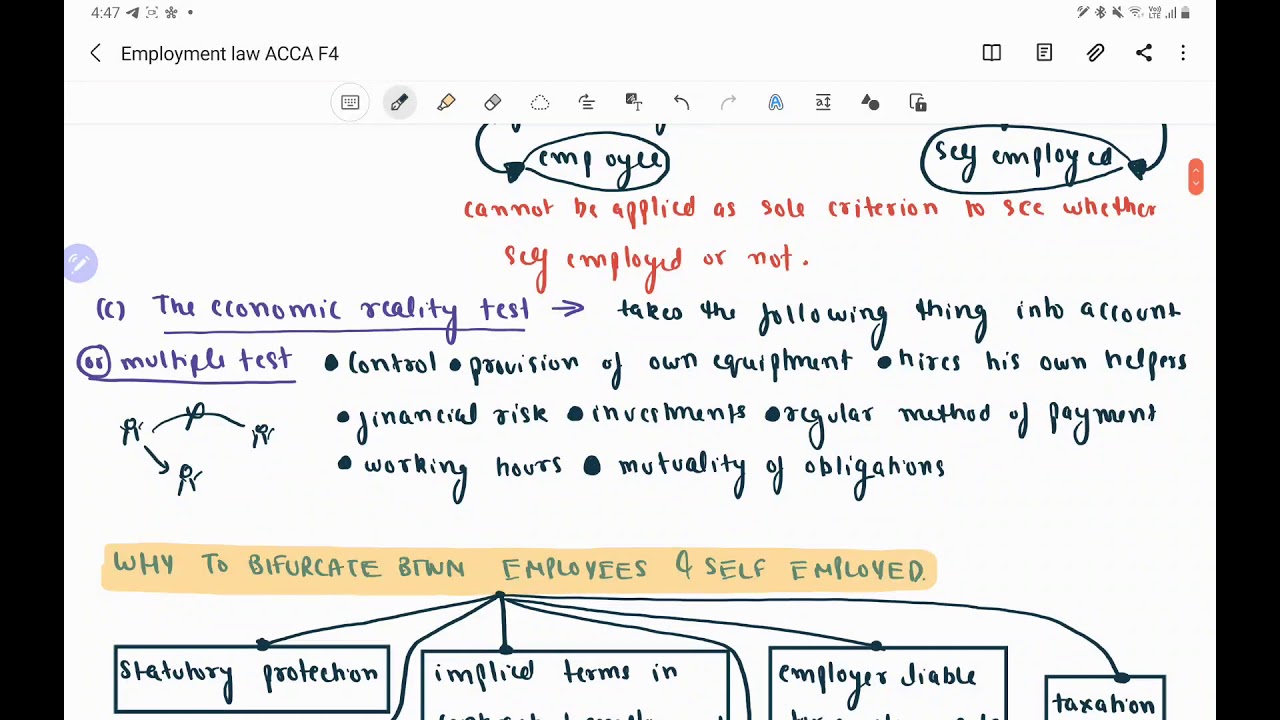 4:47
Employment law ACCA F4
empoyee self employed
cannot be applied as sole criterion to see whether
self employed or not.
(c) The economic reality test → takes the following thing into account
or multiple test • control • provision of own equiptment • hires his own helpers
• financial risk • investments • regular method of payment
• working hours • mutuality of obligations
WHY TO BIFURCATE BTWN EMPLOYEES & SELF EMPLOYED.
statutory protection
implied terms in
employer liable
taxation